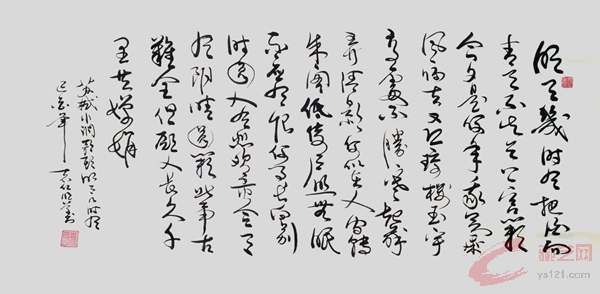 明月幾时有把酒问
青天不知天上宫阙
今夕是何年我欲乘
风归去又恐琼楼玉宇
高处不胜寒起舞
弄清影何似在人间转
朱阁低绮户照无眠
不应有恨何事长向别
时圆人有悲欢离合月
有阴晴圆缺此事古
难全但愿人长久千
里共婵娟
苏轼水调歌头明月几时有
己亥年
艺网
ya121.com